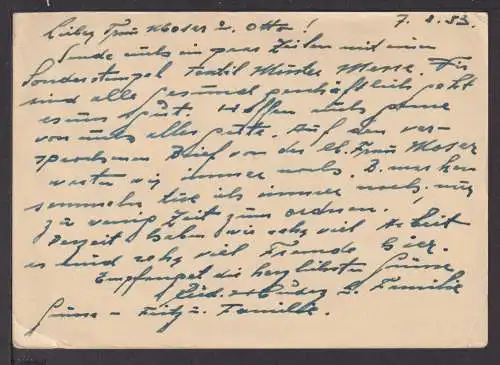 Liebe Frau Moser u. Otto! 7.8.53.
Sende euch ein paar Zeilen mit einem
Sonderstempel Textil Muster Messe. Wir
sind alle gesund geschäftlich geht
es uns gut. Hoffen auch gerne
von euch alles gute. Auf den ver-
sprochenen Brief von der lb. Frau Moser
warten wir immer noch. B. marken
sammeln tue ich immer noch. nur
zu wenig Zeit zum ordnen.!
Derzeit haben wir sehr viel Arbeit
es sind sehr viel Fremde hier.
Empfanget die herzlichsten Grüsse
u. Familie
Grüsse – Fritz u. Familie.